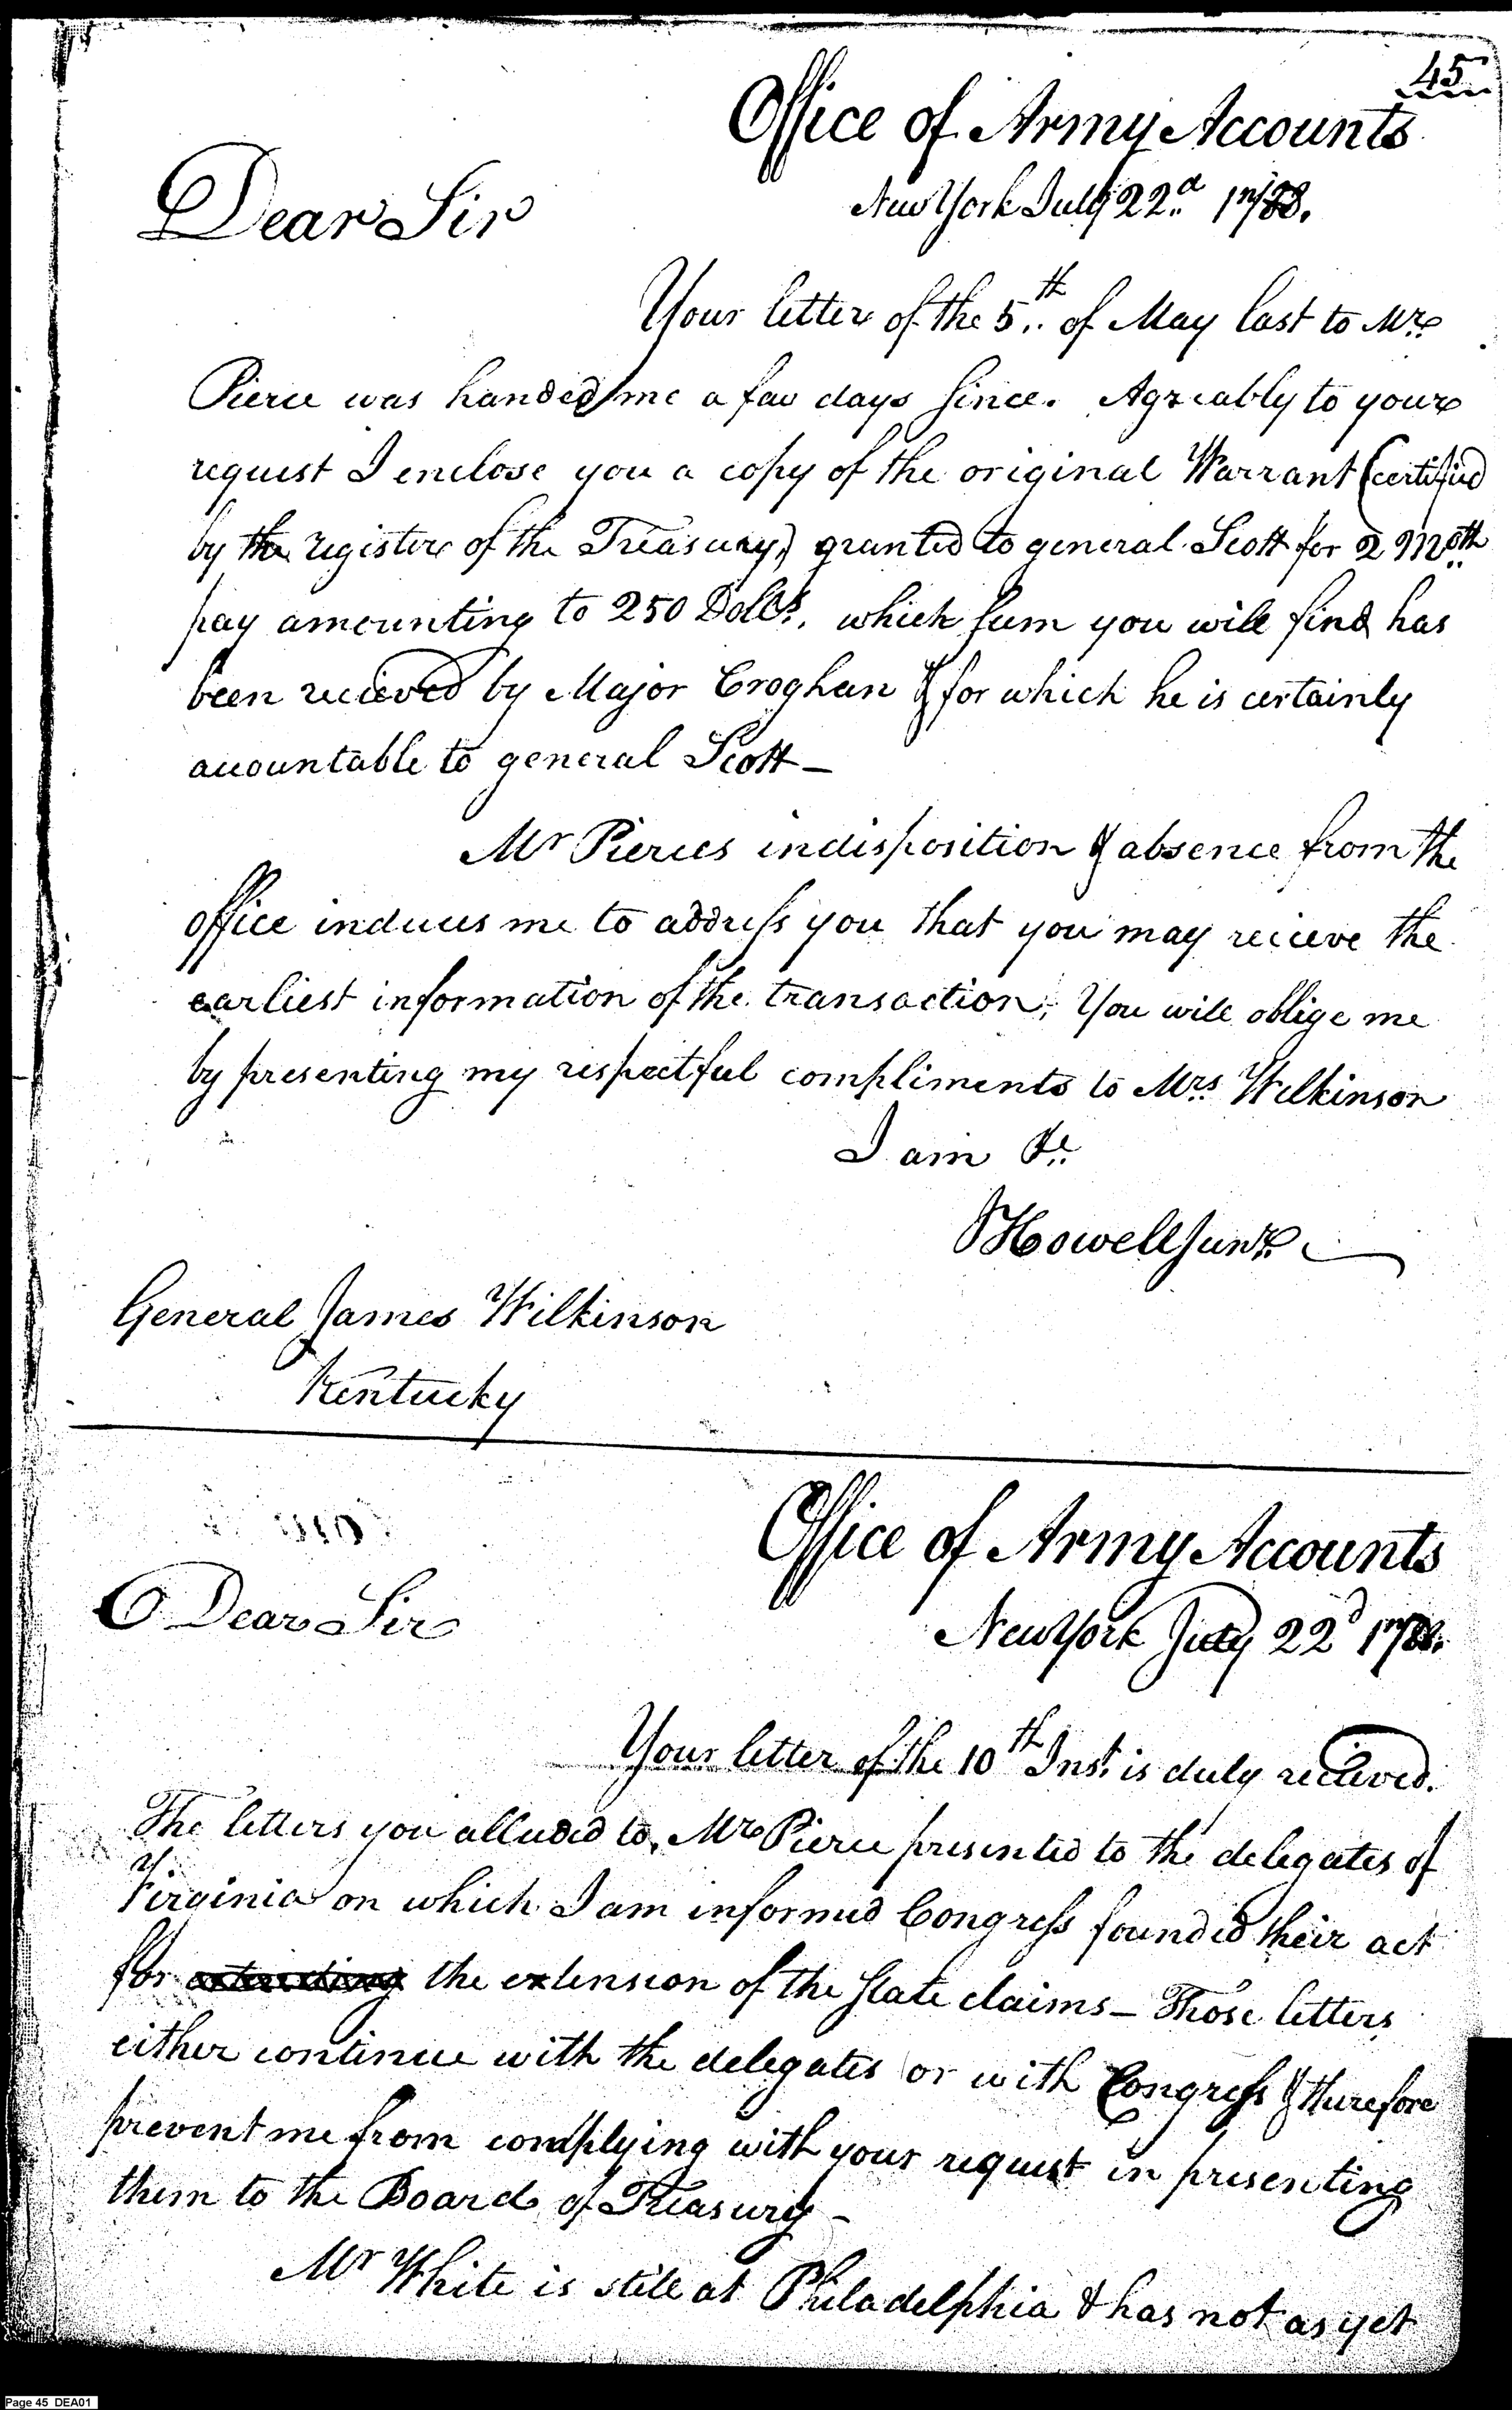 45
Office of Army Accounts
New York July 22d 1788.
Dear Sir
Your letter of the 5th of May last to Mr
Pierce was handed me a few days since. Agreably to your
request I enclose you a copy of the original Warrant (certified
by the register of the Treasury) granted to general Scott for 2 Moth
pay amounting to 250 Dollrs. which sum you will find has
been recieved by Major Croghan & for which he is certainly
accountable to general Scott—
Mr Pierces indisposition & absence from the
office induces me to address you that you may recieve the
earliest information of the transaction; You will oblige me
by presenting my respectful compliments to Mrs. Wilkinson
I am &c
JHowell Junr.
General James Wilkinson
Kentucky
Office of Army Accounts
New York July 22d 1788.
Dear Sir
Your letter of the 10th Inst. is duly recieved.
The letters you alluded to, Mr Pierce presented to the delegates of
Virginia on which I am informed Congress founded their act
for the extension of the State claims— Those letters
either continue with the delegates or with Congress & therefore
prevent me from complying with your request in presenting
them to the Board of Treasury—
Mr White is still at Philadelphia & has not as yet
Page 45 DEA01